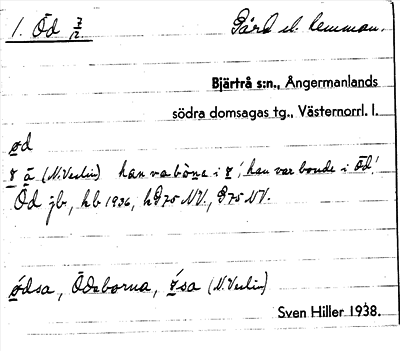 1. Öd 7/12 Gård o. hemman.
Bjärtrå s:n., Ångermanlands
södra domsagas tg., Västernorrl. l.
ød
i (N. Vestin) han va böna i, han var bonde i Öd!
Öd jb, hb 1936, h G 75 NV., G 75 NV.
ødsa, Ödsborna, (N. Vestin)
Sven Hiller 1938.